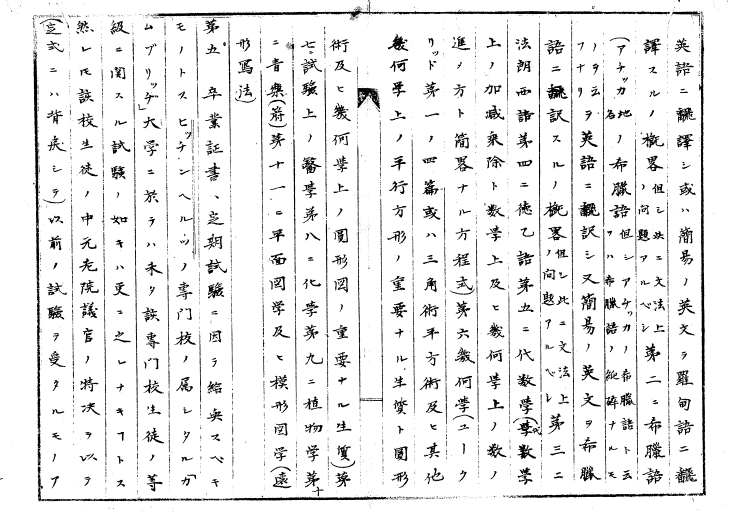 英語ニ飜譯シ或ハ簡易ノ英文ヲ羅甸語ニ飜
譯スルノ概略但シ此ニ文法上ノ問題アルベシ第二ニ希臘語
(アチッカ地名ノ希臘語但シアチッカノ希臘語ト云フハ希臘語ノ純粋ナルモ
ノヲ云フナリヲ英語ニ飜訳シ又簡易ノ英文ヲ希臘
語ニ飜訳スルノ概略但シ此ニ文法上ノ問題アルベシ第三ニ
法朗西語第四ニ徳乙語第五ニ代数学(代数学
上ノ加减乗除ト数学上及ヒ幾何学上ノ数ノ
進メ方ト簡畧ナル方程式)第六幾何学(ユーク
リッド第一ノ四篇或ハ三角術平方術及ヒ其他
幾何学上ノ平行方形ノ重要ナル生質ト圓形
術及ヒ幾何学上ノ圓形図ノ重要ナル生質)第
七ニ試験上ノ醫学第八ニ化学第九ニ植物学第十
ニ音楽(符)第十一ニ平面図学及ヒ模形図学(遠
形写法)
第五 卒業証書、定期試験ニ因テ給与スベキ
モノトスヒッチンヘルッノ専門校ノ属シタル「カ
ムブリッヂ」大学ニ於テハ未タ該専門校生徒ノ等
級ニ関スル試験ノ如キハ更ニ之レナキコトス
然レモ該校生徒ノ中元老院議官ノ特决ヲ以テ
(言式ニハ背戻シテ)以前ノ試験ヲ受タルモノア